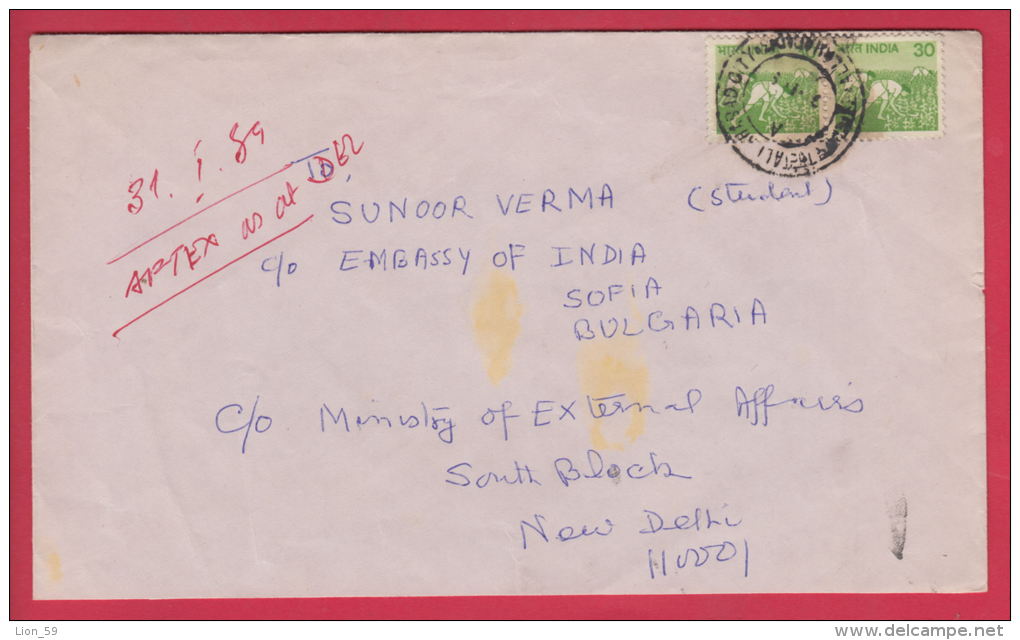 भारत INDIA 30
31. I. 89
APTEX as at DEL
To,
SUNOOR VERMA (Student)
c/o EMBASSY OF INDIA
SOFIA
BULGARIA
c/o Ministry of External Affairs
South Block
New Delhi
110001
Lion_59
http://www.delcampe.net